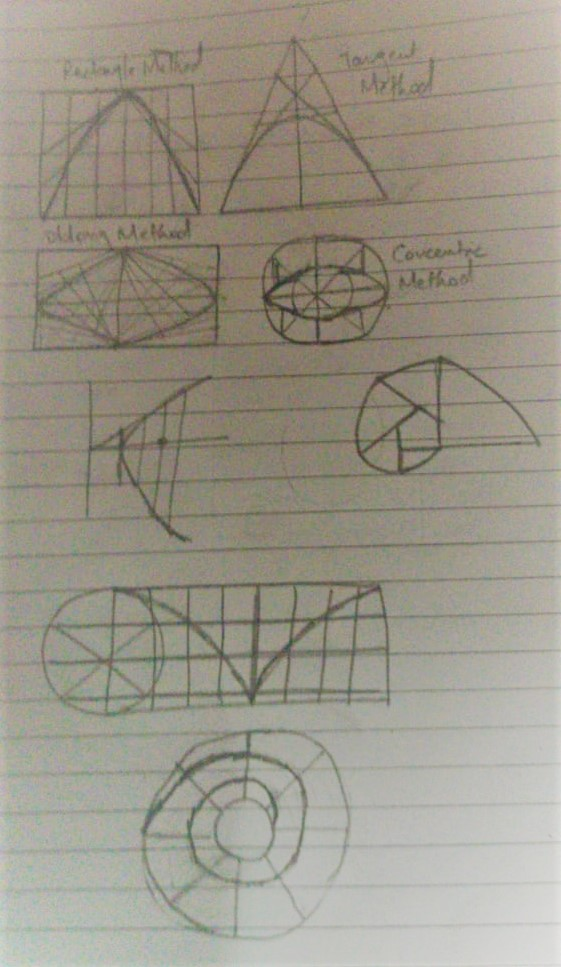 Rectangle Method
Tangent
Method
Oblong Method
Concentric
Method